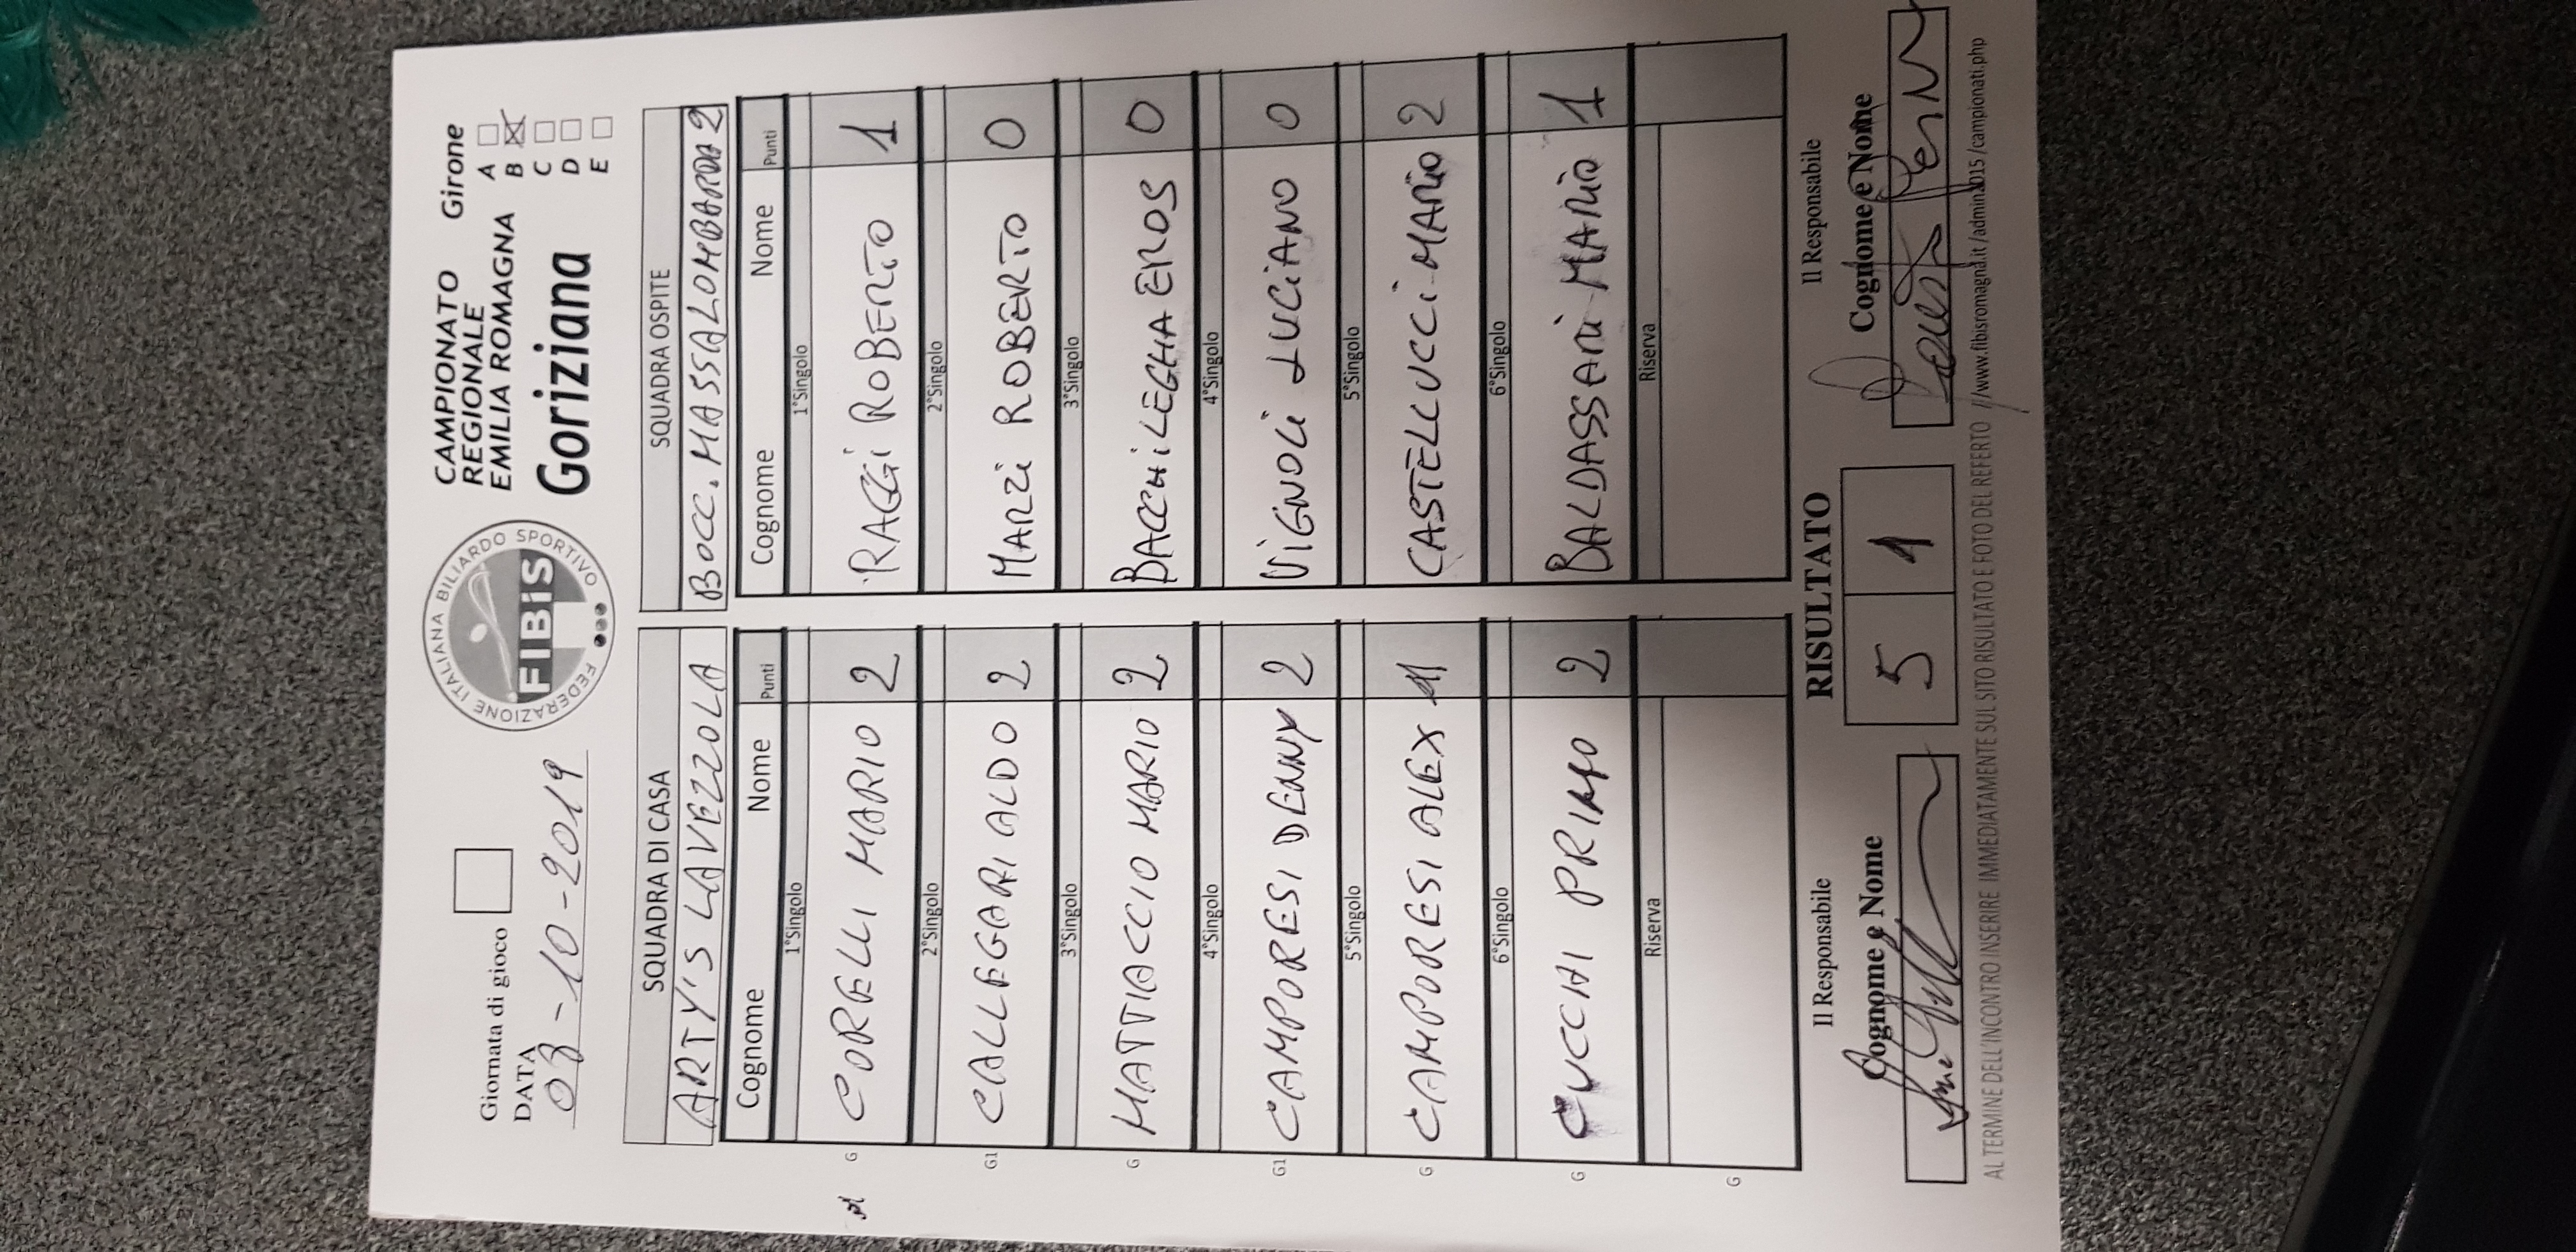 Giornata di gioco
DATA
03-10-2019
FEDERAZIONE ITALIANA BILIARDO SPORTIVO
FIBiS
CAMPIONATO
REGIONALE
EMILIA ROMAGNA
Goriziana
Girone
A
B
C
D
E
SQUADRA DI CASA SQUADRA OSPITE
ARTY'S LAVEZZOLA BOCC. MASSALOMBARDA 2
Cognome Nome Punti Cognome Nome Punti
1°Singolo 1°Singolo
G CORELLI MARIO 2 RAGGi ROBERTO 1
2°Singolo 2°Singolo
G1 CALLEGARI ALDO 2 MARZi ROBERTO 0
3°Singolo 3°Singolo
G MATTIACCIO MARIO 2 BACCHiLEGHA EROS 0
4°Singolo 4°Singolo
G1 CAMPORESI DENNY 2 ViGNOLi LUCiANO 0
5°Singolo 5°Singolo
G CAMPORESI ALEX 1 CASTELLUCCi MARiO 2
6°Singolo 6°Singolo
G CUCCHI PRIMO 2 BALDASSARi MARiO 1
Riserva Riserva
G
Il Responsabile RISULTATO Il Responsabile
Cognome e Nome 5 1 Cognome e Nome
AL TERMINE DELL'INCONTRO INSERIRE IMMEDIATAMENTE SUL SITO RISULTATO E FOTO DEL REFERTO //www.fibisromagna.it /admin2015 /campionati.php